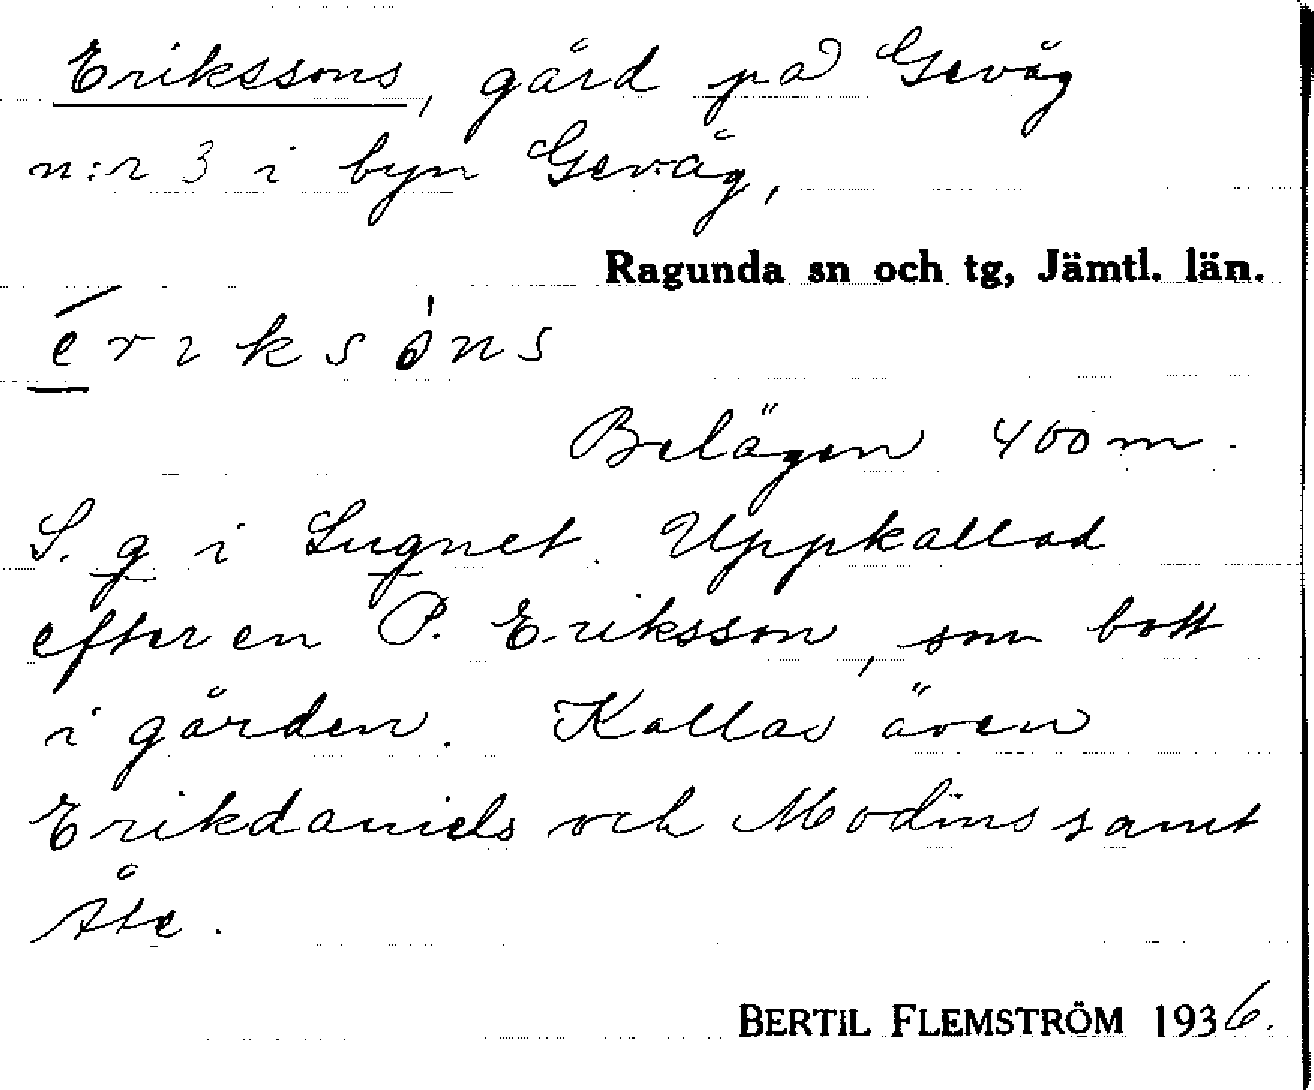 Erikssons, gård på Gevåg
n:r 3 i byn Gevåg,
Ragunda sn och tg, Jämtl. län.
é r ı k s ò n s
Belägen 400 m.
S. g i Lugnet. Uppkallad
efter en P. Eriksson, som bott
i gården. Kallas även
Erikdaniels och Modins samt
Åte.
BERTIL FLEMSTRÖM 1936.